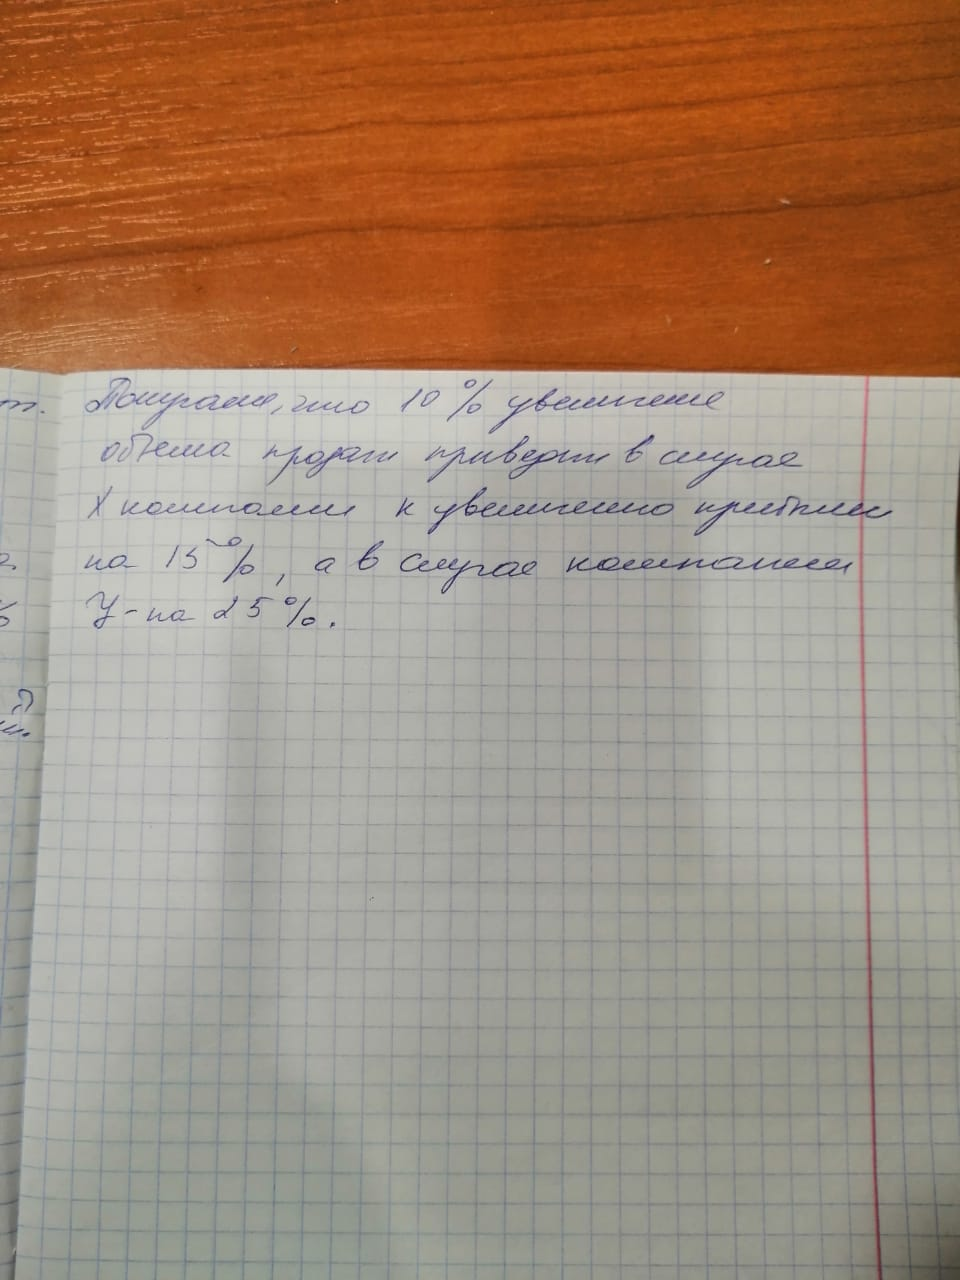 Получаем, что 10% увеличение
объема продаж приведет в случае
X компании к увеличению прибыли
на 15%, а в случае компании
У - на 25%.